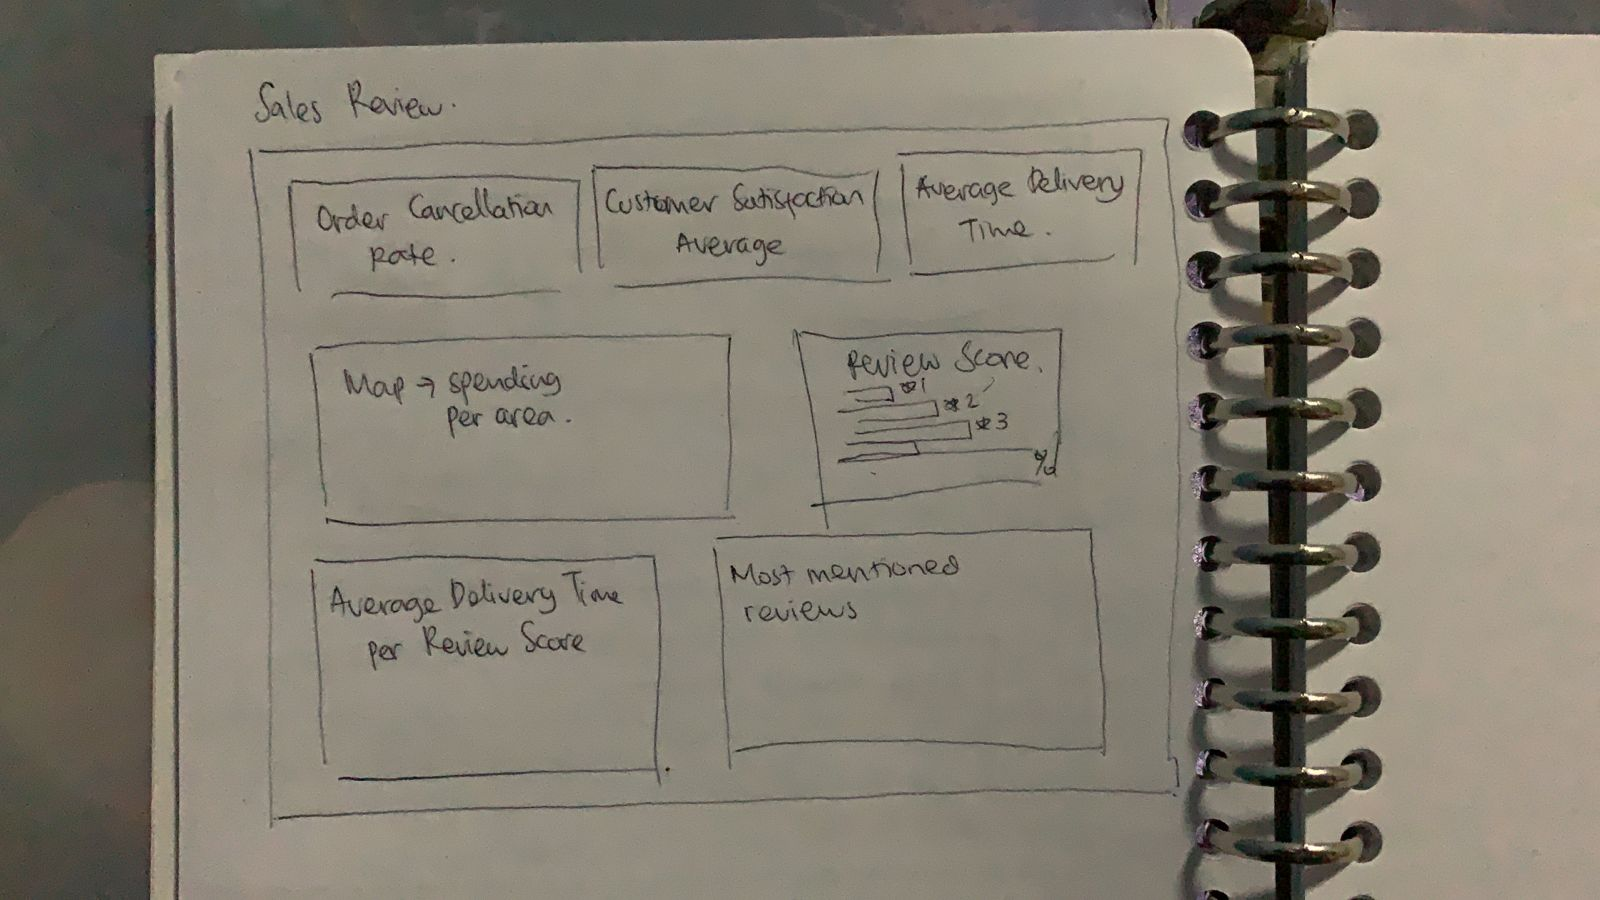 Sales Review.
Order Cancellation
Rate.
Customer Satisfaction
Average
Average Delivery
Time.
Map → spending
per area.
Review Score.
*1
*2
*3
%
Average Delivery Time
per Review Score
Most mentioned
reviews